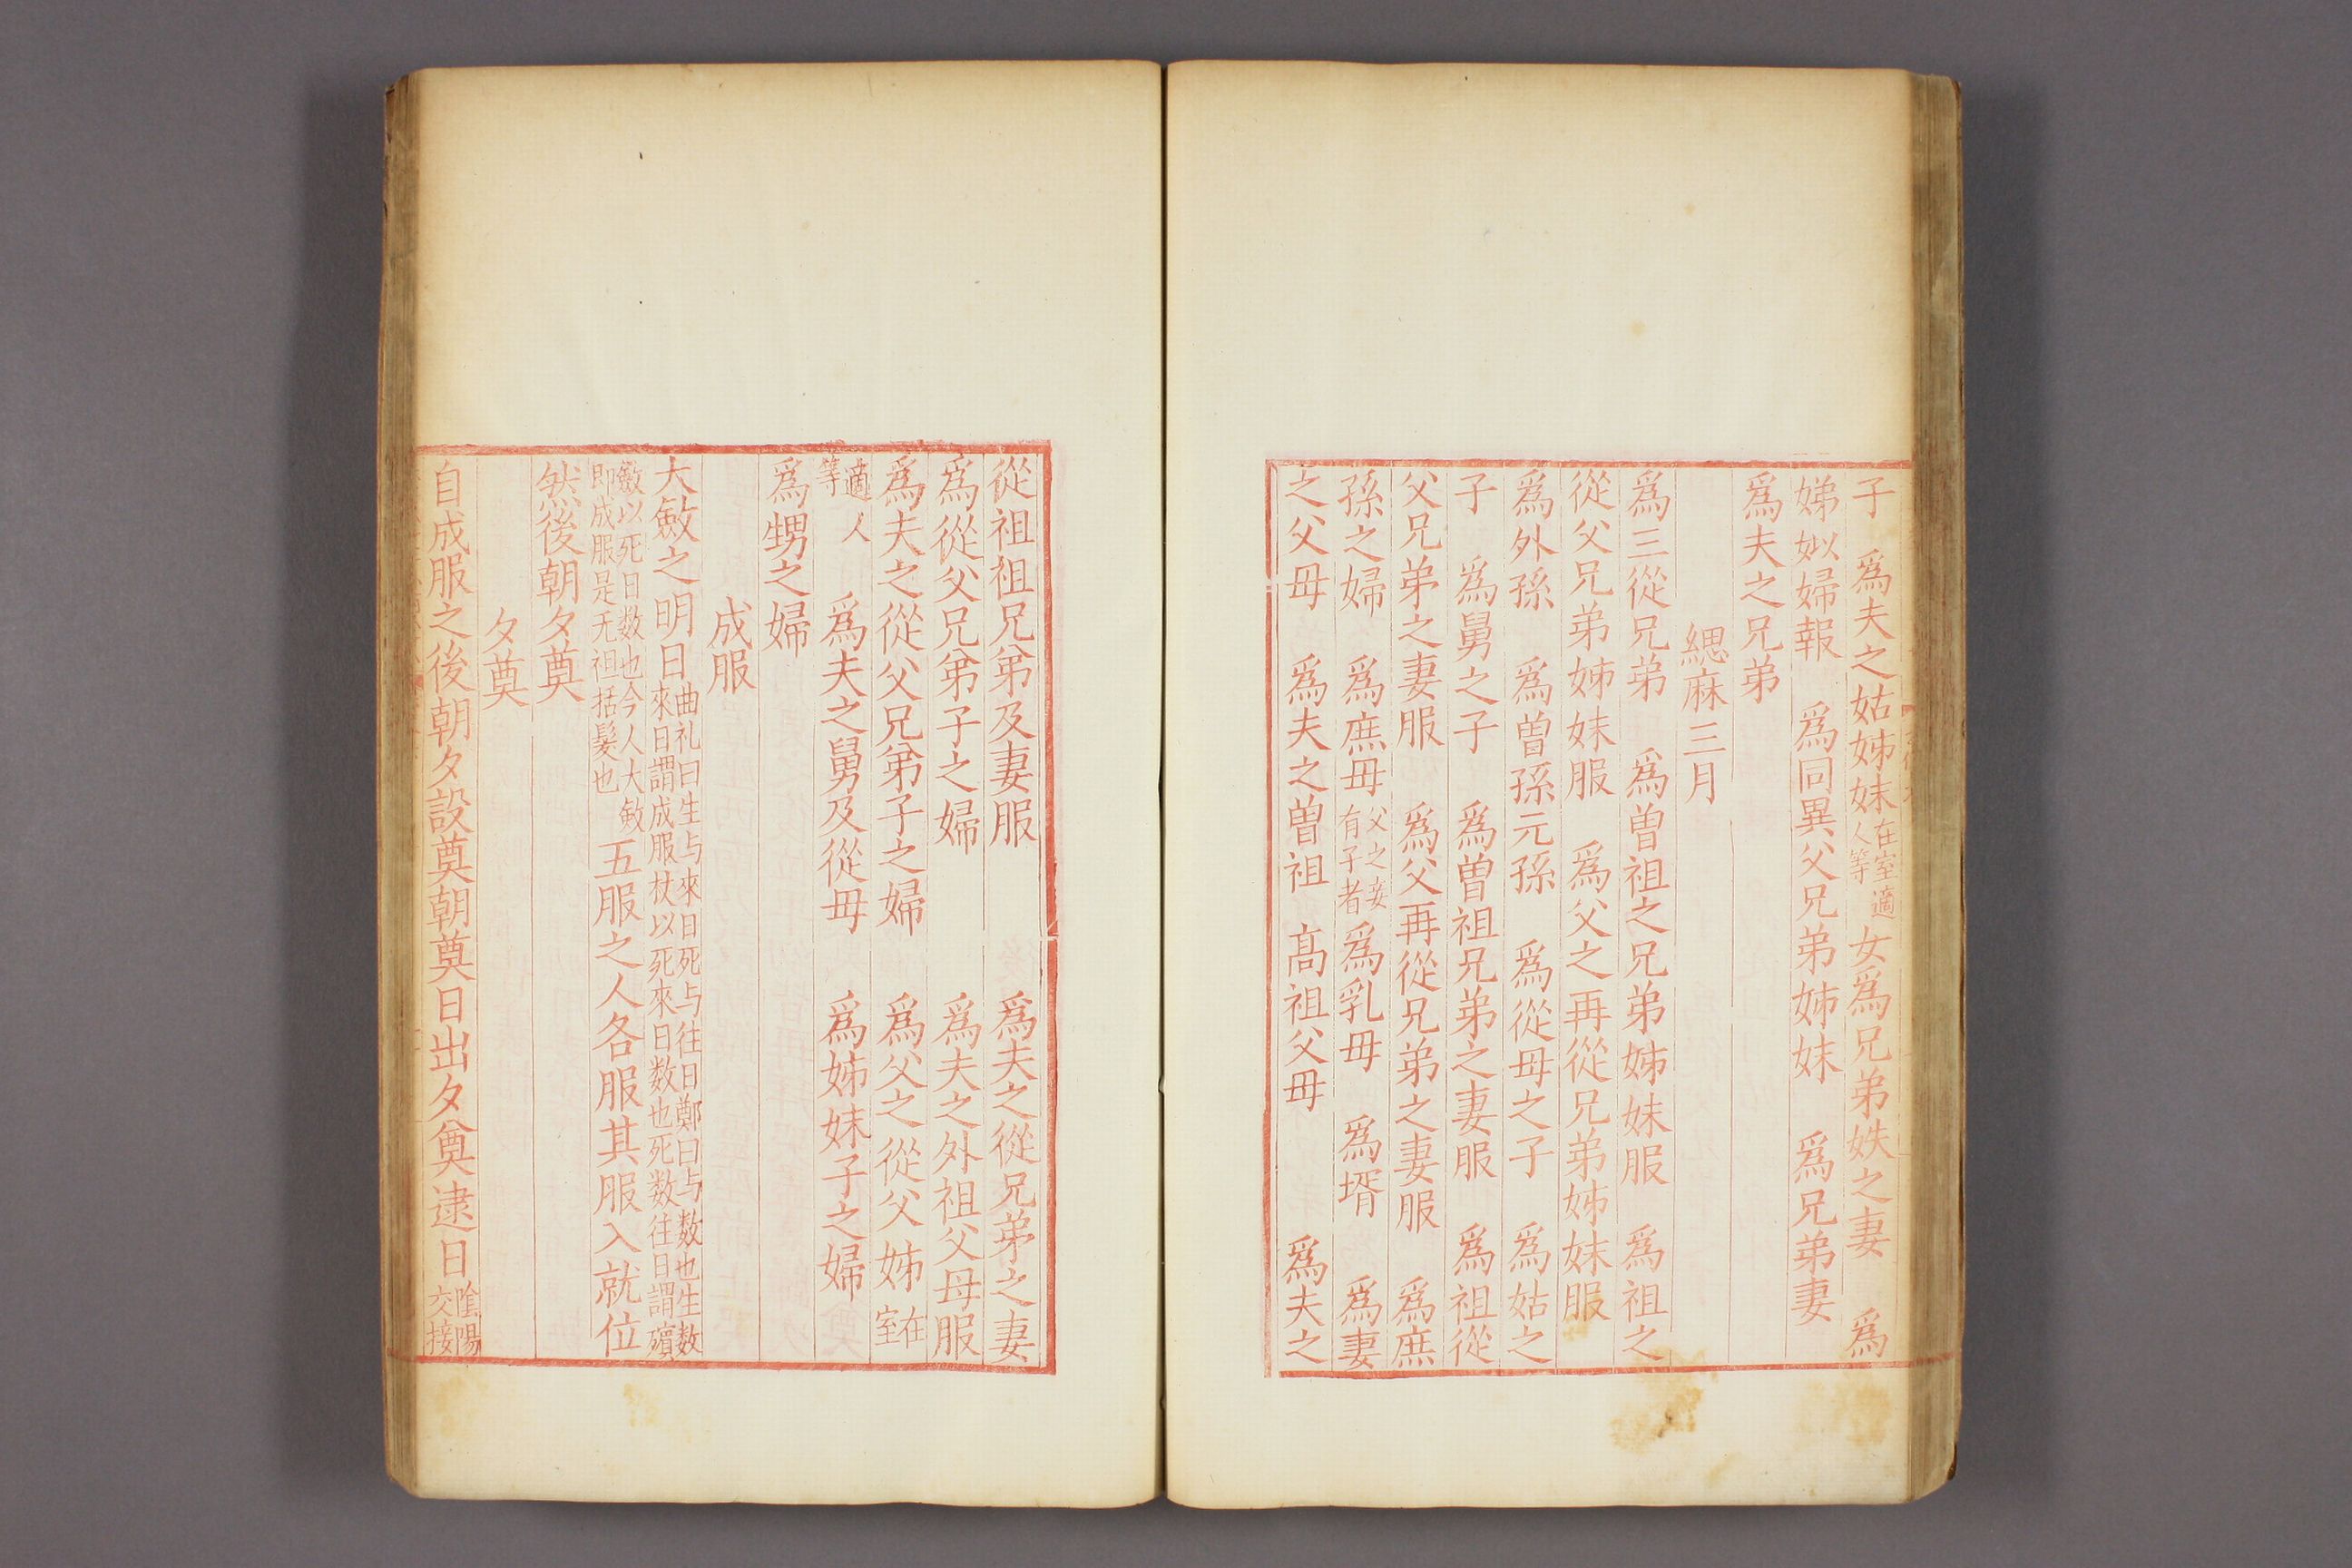 子　爲夫之姑姊妹在室適人等女爲兄弟姪之妻　爲
娣姒婦報　爲同異父兄弟姊妹　爲兄弟妻
爲夫之兄弟
緦麻三月
爲三從兄弟　爲曽祖之兄弟姊妹服　爲祖之
從父兄弟姊妹服　爲父之再從兄弟姊妹服
爲外孫　爲曽孫元孫　爲從母之子　爲姑之
子　爲舅之子　爲曽祖兄弟之妻服　爲祖從
父兄弟之妻服　爲父再從兄弟之妻服　爲庶
孫之婦　爲庶母父之妾有子者爲乳母　爲壻　爲妻
之父母　爲夫之曽祖　髙祖父母　爲夫之
從祖祖兄弟及妻服　爲夫之從兄弟之妻
爲從父兄弟子之婦　爲夫之外祖父母服
爲夫之從父兄弟子之婦　爲父之從父姊在室
適人等　爲夫之舅及從母　爲姊妹子之婦
爲甥之婦
成服
大斂之明日曲礼曰生与來日死与往日鄭曰与数也生数來日謂成服杖以死來日数也死数往日謂殯
斂以死日数也今人大斂即成服是无袒括髮也五服之人各服其服入就位
然後朝夕奠
夕奠
自成服之後朝夕設奠朝奠日出夕奠逮日陰陽交接